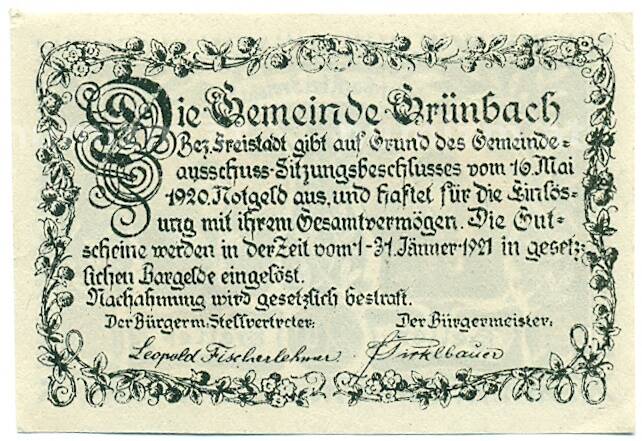 Die Gemeinde Grünbach
Bez. Freistadt gibt auf Grund des Gemeinde=
ausschuss-Sitzungsbeschlusses vom 16. Mai
1920. Notgeld aus, und haftet für die Einlös=
ung mit ihrem Gesamtvermögen. Die Gut=
scheine werden in der Zeit vom 1-31. Jänner 1921 in gesetz=
lichen Bargelde eingelöst.
Nachahmung wird gesetzlich bestraft.
Der Bürgerm. Stellvertreter: Der Bürgermeister:
Leopold Fischerlehner Pirklbauer